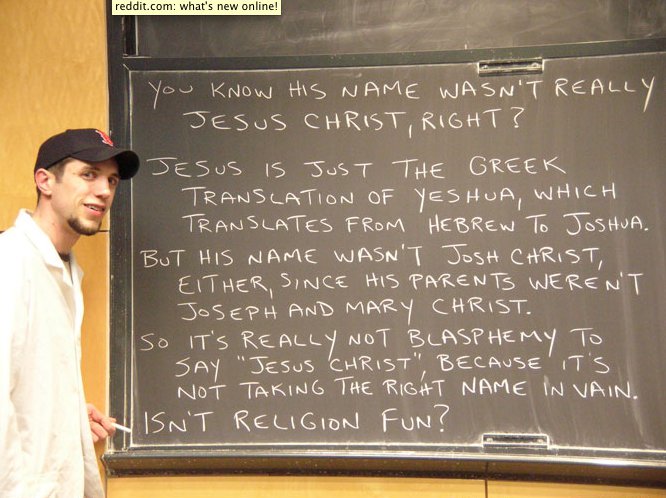 reddit.com: what's new online!
YOU KNOW HIS NAME WASN'T REALLY
JESUS CHRIST, RIGHT?
JESUS IS JUST THE GREEK
TRANSLATION OF YESHUA, WHICH
TRANSLATES FROM HEBREW TO JOSHUA.
BUT HIS NAME WASN'T JOSH CHRIST,
EITHER, SINCE HIS PARENTS WEREN'T
JOSEPH AND MARY CHRIST.
SO IT'S REALLY NOT BLASPHEMY TO
SAY "JESUS CHRIST", BECAUSE IT'S
NOT TAKING THE RIGHT NAME IN VAIN.
ISN'T RELIGION FUN?